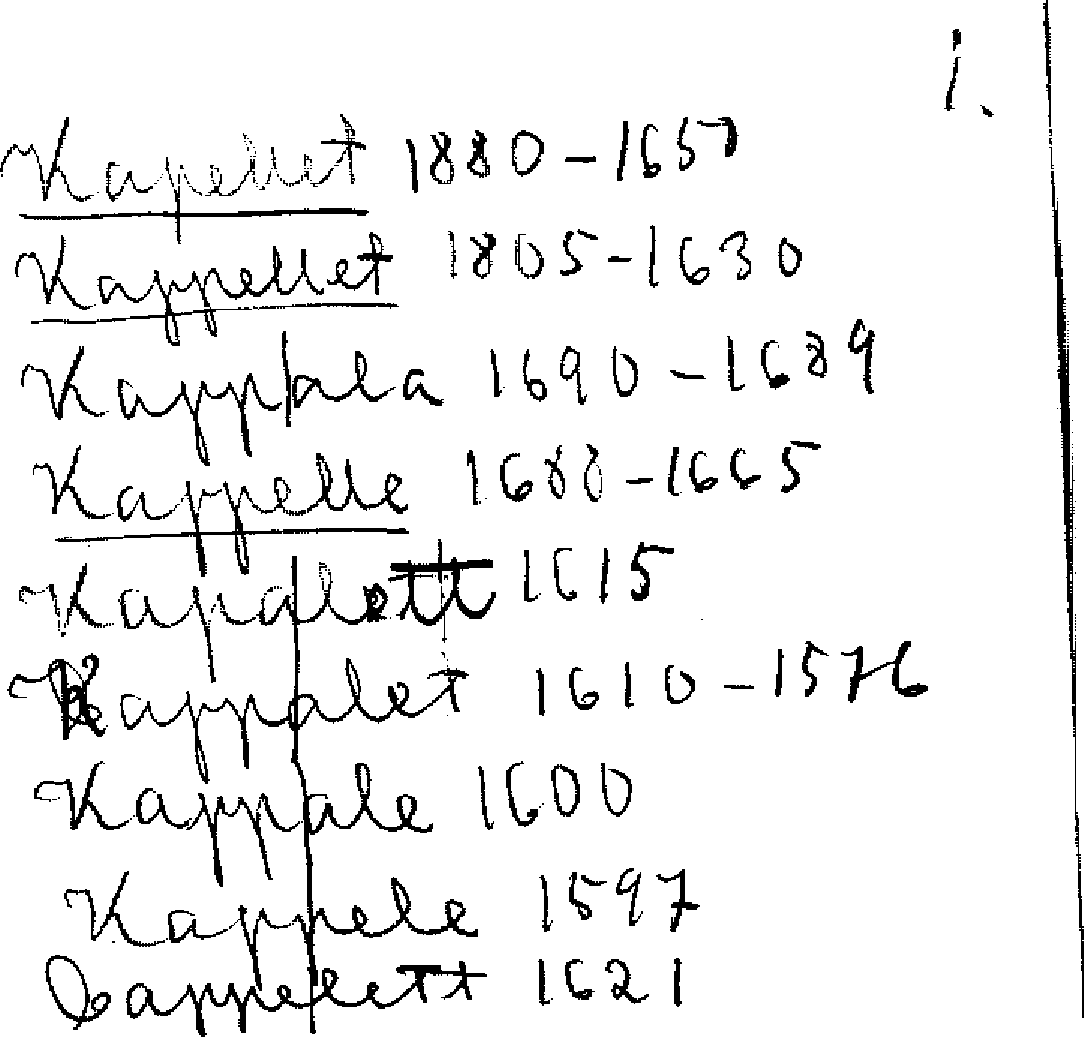 1.
Kapellet 1880-1657
Kappellet 1805-1630
Kappala 1690-1689
Kappelle 1688-1665
Kapalett 1615
Kappalet 1610-1576
Kappale 1600
Kappele 1597
Cappelett 1621